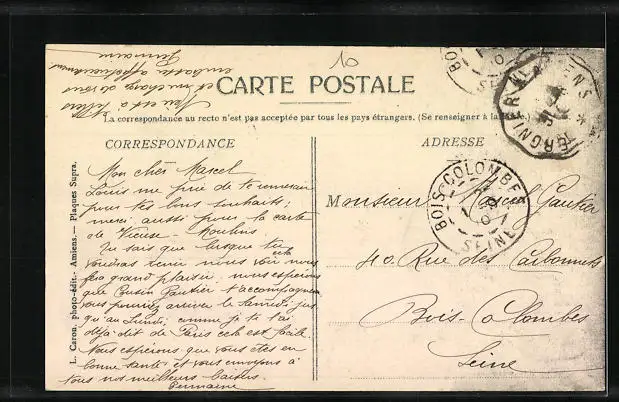 CARTE POSTALE
La correspondance au recto n'est pas acceptée par tous les pays étrangers. (Se renseigner à la
CORRESPONDANCE
ADRESSE
Mon cher Marcel
Louis me prie de te remercier
pour tes bons souhaits;
merci aussi pour la carte
de Vieuse - Moulins
Tu sais que lorsque tu
voudras venir nous voir cela nous
fera grand plaisir, nous espérions
que Cousin Gautier t'accompagnera
vous pourriez arriver le Samedi jus
qu'au Lundi, comme je te l'ai
déjà dit de Paris c'est facile.
Nous espérons que vous êtes en
bonne santé et vous envoyons à
tous nos meilleurs baisers.
Germaine
et me charge de vous
embrasser affectueusement
Germaine
Monsieur Marcel Gautier
40 Rue des Carbonnets
Bois-Colombes
Seine
BOIS-COLOMBES
SEINE
TERGNIER
L. Caron, photo-édit.- Amiens.— Plaques Supra.